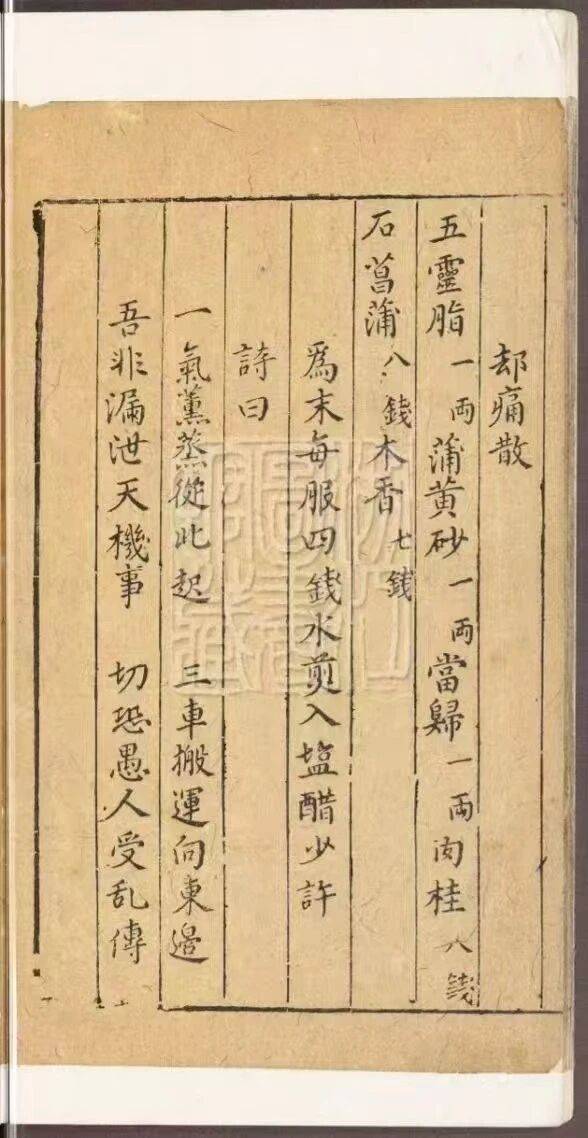 却痛散
五靈脂一两蒲黄砂一两當歸一两肉桂八錢
石菖蒲八錢木香七錢
爲末每服四錢水煎入塩醋少許
詩曰
一氣薰蒸從此起　三車搬運向東邊
吾非漏泄天機事　切恐愚人受乱傳